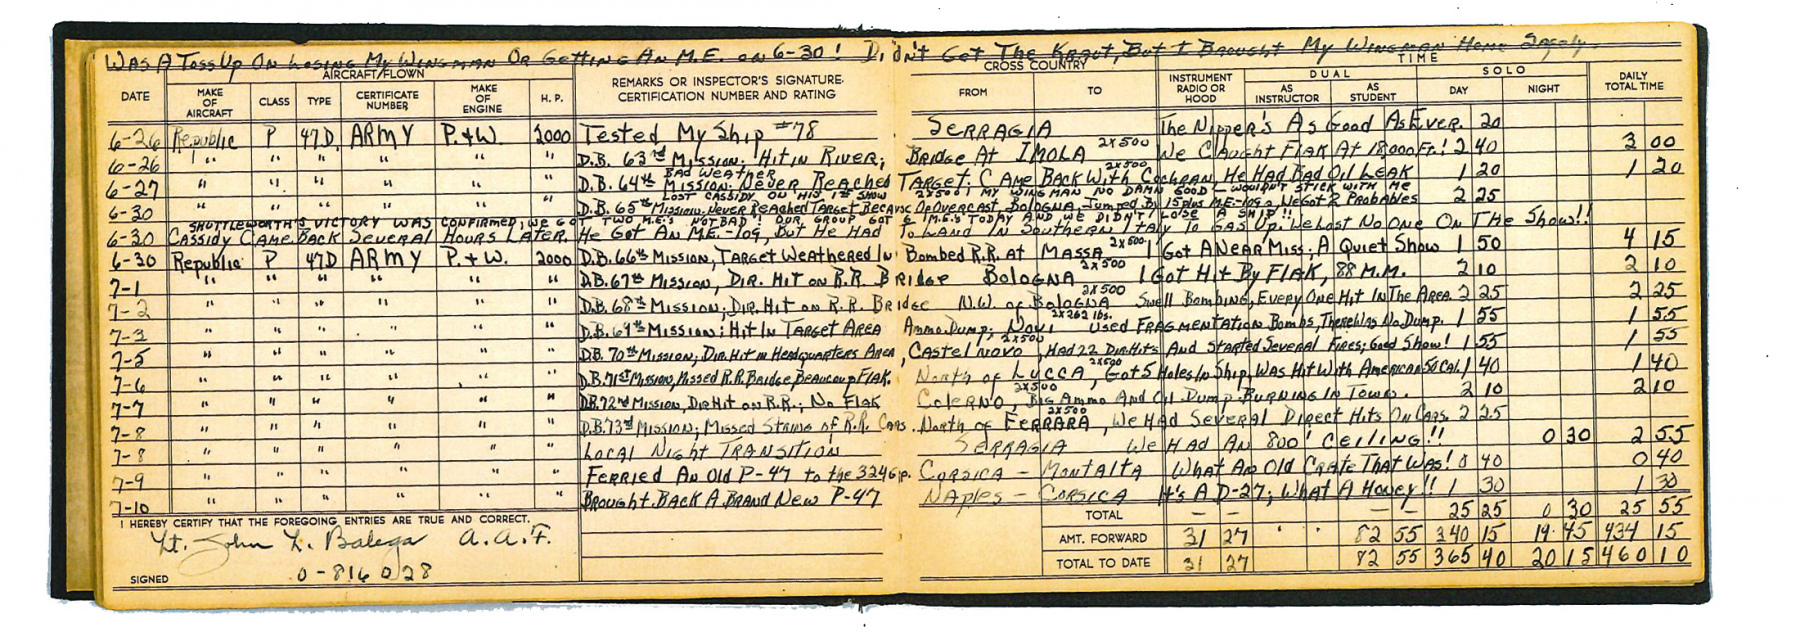 WAS A TOSS UP ON LOSING MY WINGMAN OR GETTING AN M.E. ON 6-30! DIDN'T GET THE KRAUT, BUT I BROUGHT MY WINGMAN HOME SAFELY.
AIRCRAFT/FLOWN CROSS COUNTRY TIME
DATE MAKE OF AIRCRAFT CLASS TYPE CERTIFICATE NUMBER MAKE OF ENGINE H. P. REMARKS OR INSPECTOR'S SIGNATURE. CERTIFICATION NUMBER AND RATING FROM TO INSTRUMENT RADIO OR HOOD DUAL AS INSTRUCTOR AS STUDENT SOLO DAY NIGHT DAILY TOTAL TIME
6-26 Republic P 47D ARMY P.+W. 2000 Tested My Ship #78 SERRAGIA The Nipper's As Good As Ever. 20
6-26 " " " " " " D.B. 63rd MISSION; HIT IN RIVER; BRIDGE AT IMOLA 2x500 We CAUGHT FLAK AT 18,000 Ft! 2 40 3 00
6-27 " " " " " " D.B. 64th MISSION; BAD WEATHER NEVER REACHED TARGET; CAME BACK WITH 2x500 COCHRAN HE HAD BAD OIL LEAK 1 20 1 20
LOST CASSIDY ON HIS 1st SHOW 2x500; MY WINGMAN NO DAMN GOOD - WOULDN'T STICK WITH ME
6-30 " " " " " " D.B. 65th MISSION, NEVER REACHED TARGET BECAUSE OF OVERCAST BOLOGNA, JUMPED BY 15 plus M.E.-109s, WE GOT 2 PROBABLES 2 25
SHUTTLEWORTH'S VICTORY WAS CONFIRMED; WE GOT TWO M.E.'S NOT BAD! OUR GROUP GOT 6 M.E.'S TODAY AND WE DIDN'T LOSE A SHIP!!
6-30 CASSIDY CAME BACK SEVERAL HOURS LATER. HE GOT AN M.E.-109, BUT HE HAD TO LAND IN SOUTHERN ITALY TO GAS UP. WE LOST NO ONE ON THE SHOW!!
6-30 Republic P 47D ARMY P.+W. 2000 D.B. 66th MISSION, TARGET WEATHERED IN BOMBED R.R. AT MASSA 2x500 I GOT A NEAR MISS; A QUIET SHOW 1 50 4 15
7-1 " " " " " " D.B. 67th MISSION, DIR. HIT ON R.R. BRIDGE BOLOGNA 2x500 I GOT HIT BY FLAK, 88 M.M. 2 10 2 10
7-2 " " " " " " D.B. 68th MISSION; DIR. HIT ON R.R. BRIDGE N.W. OF BOLOGNA 2x500 SWELL BOMBING, EVERY ONE HIT IN THE AREA. 2 25 2 25
7-3 " " " " " " D.B. 69th MISSION: HIT IN TARGET AREA AMMO DUMP; NOVI 2x262 lbs. USED FRAGMENTATION BOMBS, THERE WAS NO DUMP. 1 55 1 55
7-5 " " " " " " D.B. 70th MISSION; DIR. HIT IN HEADQUARTERS AREA, CASTELNOVO 2x500, HAD 22 DIR. HITS AND STARTED SEVERAL FIRES; GOOD SHOW! 1 55 1 55
7-6 " " " " " " D.B. 71st MISSION, MISSED R.R. BRIDGE BEAUCOUP FLAK. NORTH OF LUCCA 2x500, GOT 5 HOLES IN SHIP, WAS HIT WITH AMERICAN 50 CAL. 1 40 1 40
7-7 " " " " " " D.B. 72nd MISSION, DIR HIT ON R.R.; NO FLAK COLERNO 2x500, BIG AMMO AND OIL DUMP BURNING IN TOWN. 2 10 2 10
7-8 " " " " " " D.B. 73rd MISSION; MISSED STRING OF R.R. CARS. NORTH OF FERRARA 2x500, WE HAD SEVERAL DIRECT HITS ON CARS. 2 25
7-8 " " " " " " LOCAL NIGHT TRANSITION SERRAGIA WE HAD AN 800' CEILING!! 0 30 2 55
7-9 " " " " " " FERRIED AN OLD P-47 to the 324Gp. CORSICA - MONTALTA WHAT AN OLD CRATE THAT WAS! 0 40 0 40
7-10 " " " " " " BROUGHT BACK A BRAND NEW P-47 NAPLES - CORSICA It'S A D-27; WHAT A HONEY!! 1 30 1 30
I HEREBY CERTIFY THAT THE FOREGOING ENTRIES ARE TRUE AND CORRECT. TOTAL — — — — 25 25 0 30 25 55
Lt. John L. Balega A.A.F. AMT. FORWARD 31 27 " " 82 55 340 15 19 45 434 15
SIGNED O-816028 TOTAL TO DATE 31 27 82 55 365 40 20 15 460 10